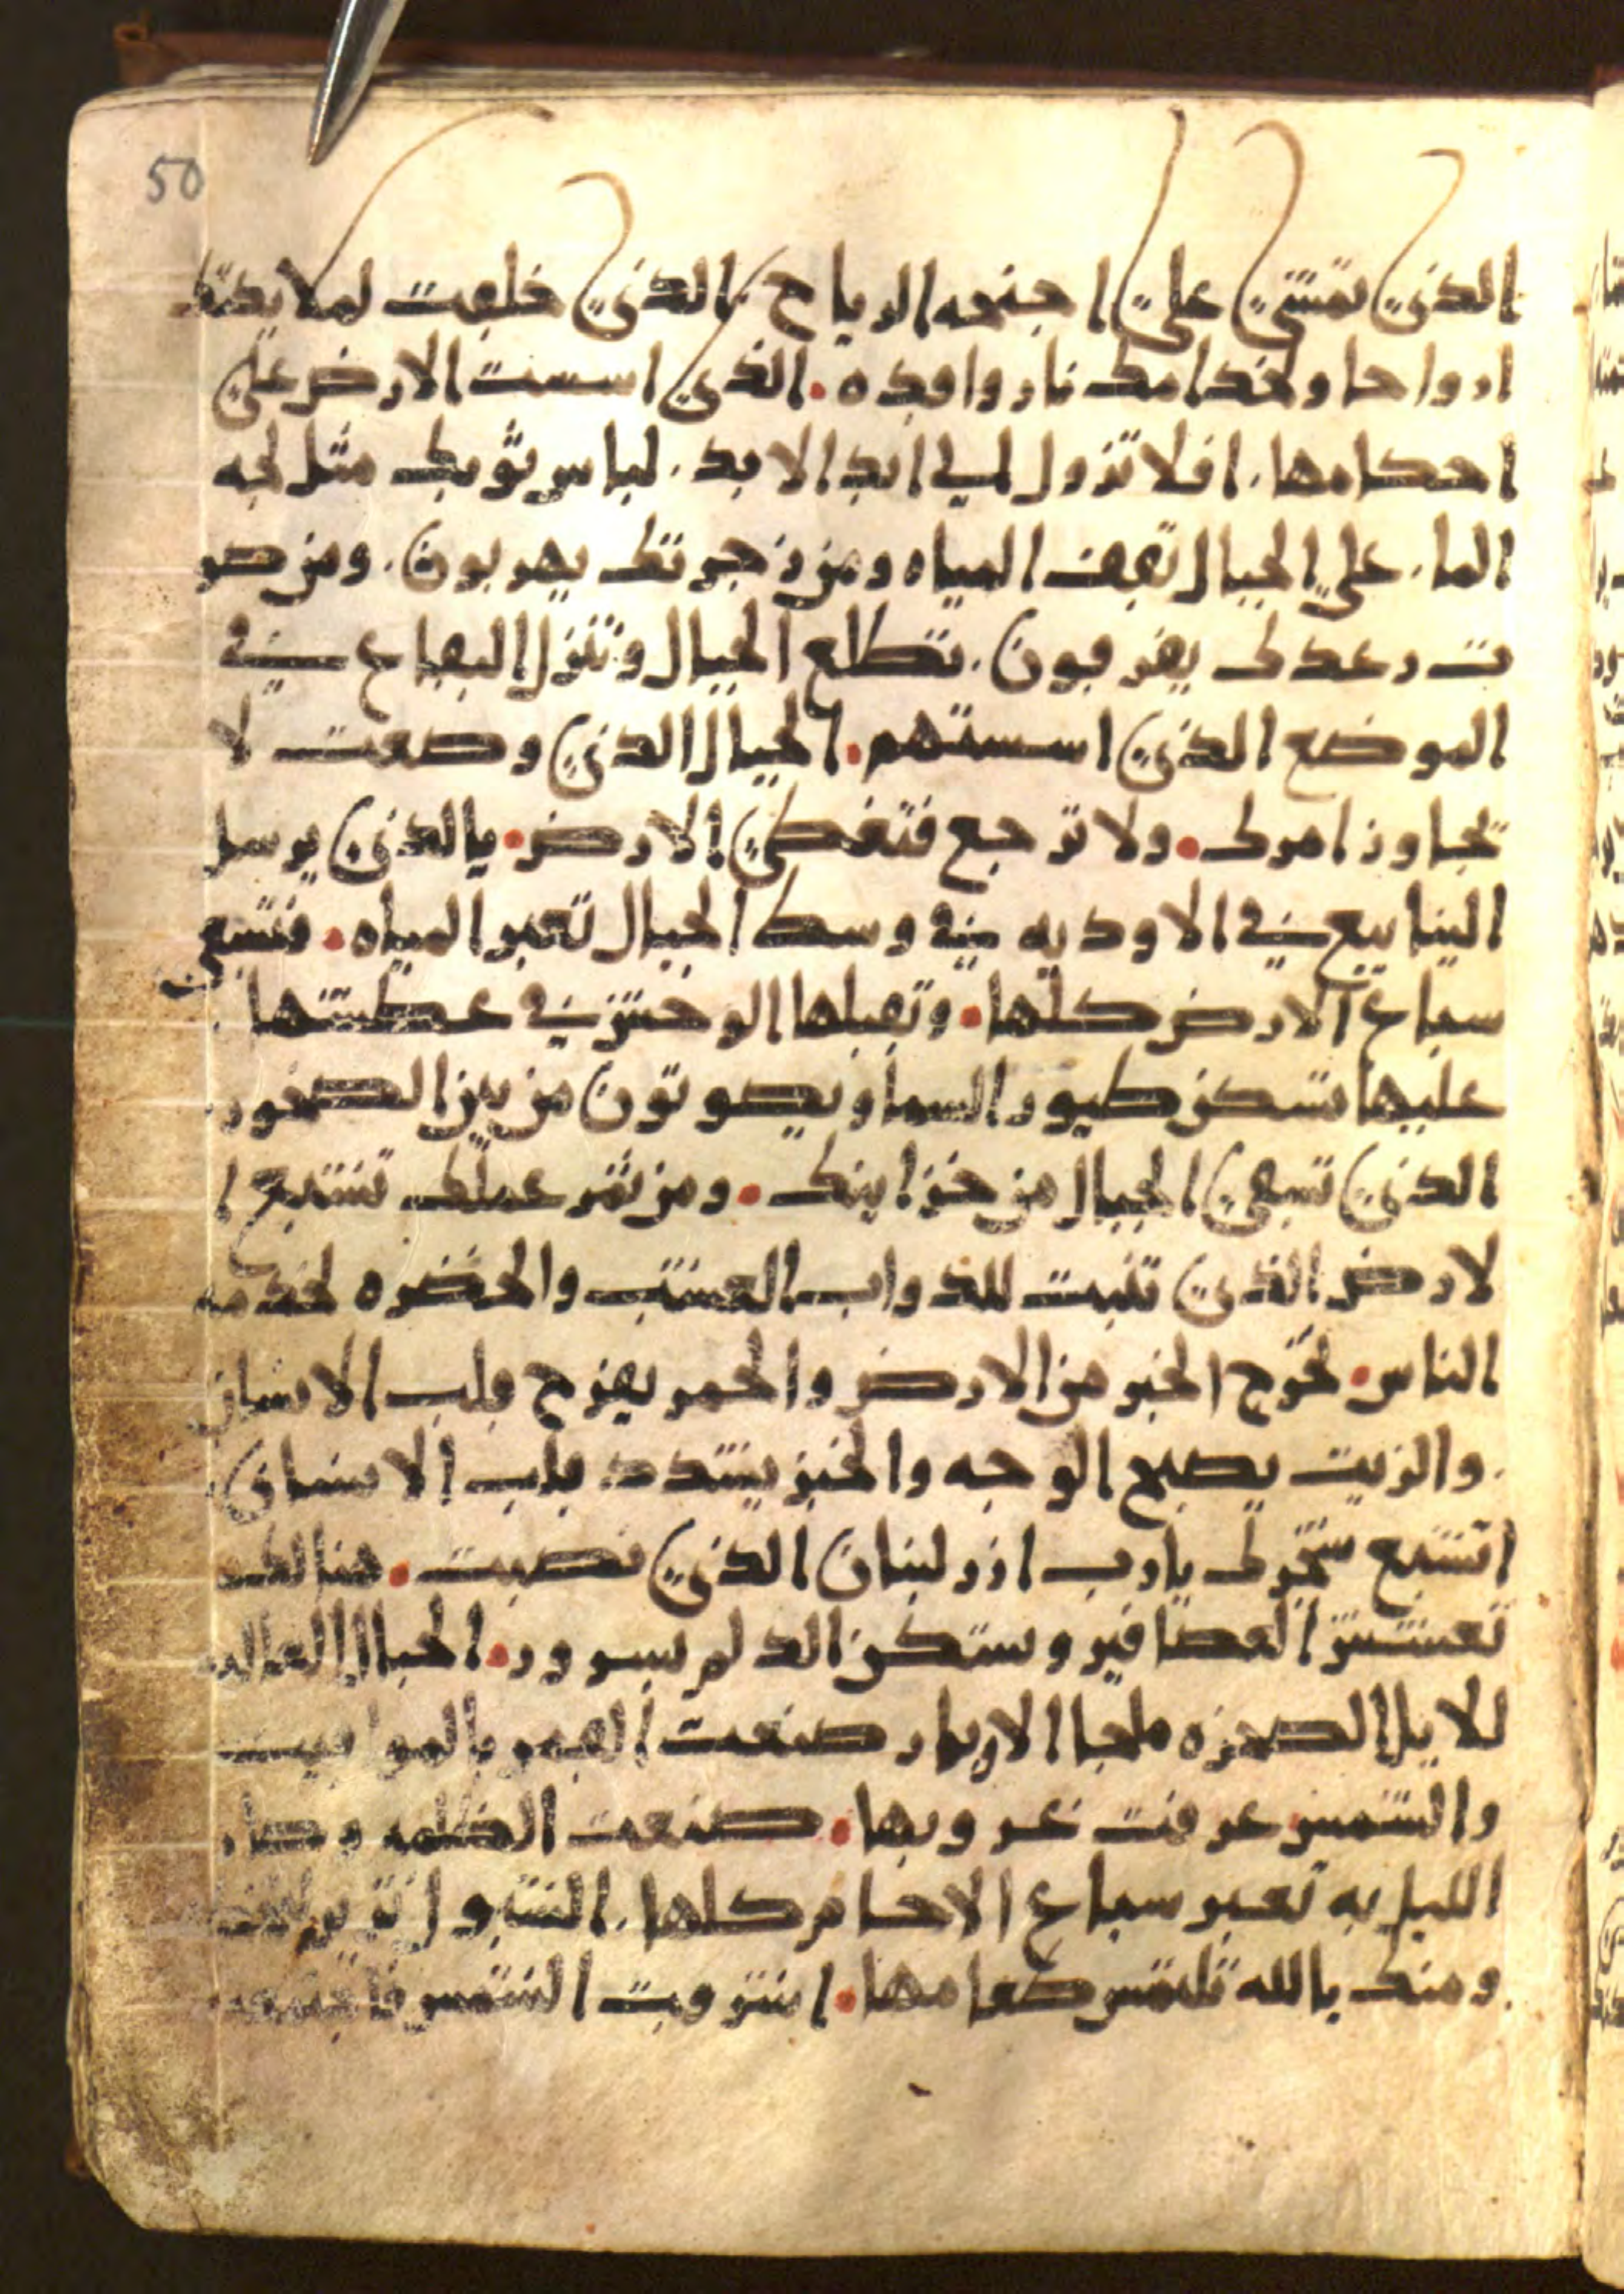 50
الذي تمشي علي اجنحه الرياح الذي خلقت لملايكتك
ارواحا ولخدامك نار واقده. الذي اسست الارض علي
احكامها. افلا تزول الي ابد الابد. لباس ثوبك مثل لجه
الما. علي الجبال تقف المياه ومن زجرتك يهربون. ومن صو
ت رعدك يفرقون. تطلع الجبال وتنزل البقاع في
الموضع الذي اسستهم. الجبال الذي وضعت لا
تجاوز امرك. ولا ترجع فتغطي الارض. يالذي يرسل
الينابيع في الاوديه في وسط الجبال تعبر المياه. فتسقي
سباع الارض كلها. وتقبلها الوحش في عطشها
عليها تسكن طيور السما ويصوتون من بين الصخور
الذي تسقي الجبال من خزاينك. ومن ثمر عملك تشبع ا
لارض الذي تنبت للدواب العشب والخضره لخدمه
الناس. لخرج الخبز من الارض والخمر يفرح قلب الانسان
. والزيت يصبح الوجه والخبز يشدد قلب الانسان.
اتشبع شجرك يارب ارز لبنان الذي نصبت. هنالك
تعشش العصافير وستكن الدلم بسرور. الجبال العاليه
للايل الصخره ملجا الارنار صنعت القمر بالمواقيت
والشمس عرفت غروبها. صنعت الظلمه وصار
الليل به تعبر سباع الاجام كلها. الشبول تزير
ومنك يالله تلتمس طعامها. اشرقت الشمس فاجتمعت